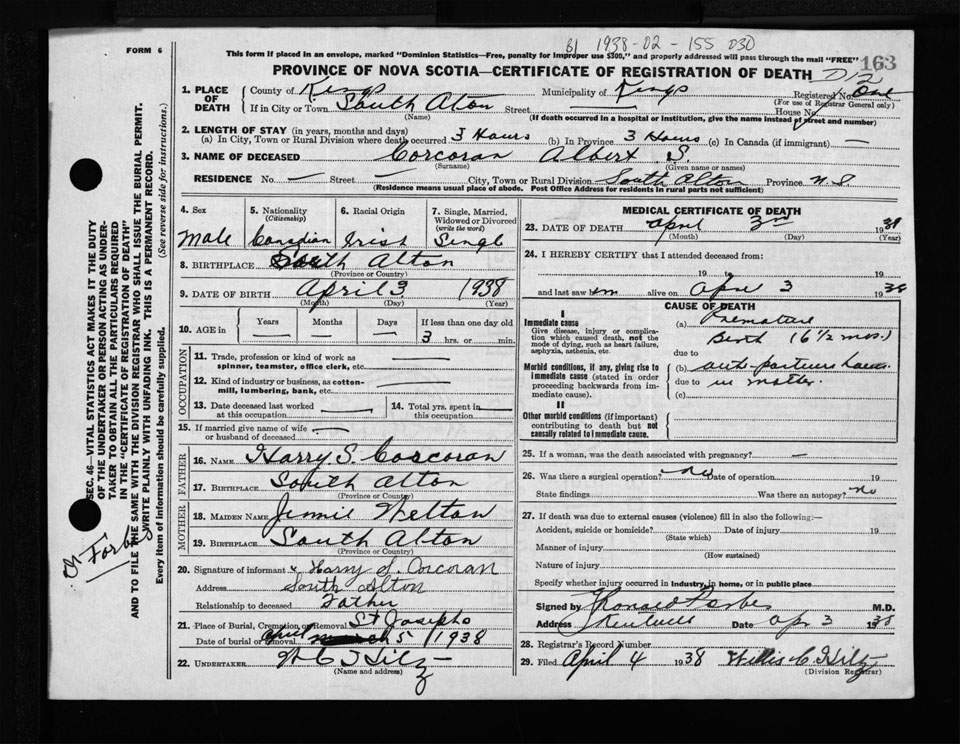 FORM 6
This form if placed in an envelope, marked "Dominion Statistics—Free, penalty for improper use $300," and properly addressed will pass through the mail "FREE"
1938-02-155 030
163
PROVINCE OF NOVA SCOTIA—CERTIFICATE OF REGISTRATION OF DEATH
1. PLACE OF DEATH
County of Kings Municipality of Kings Registered No. One
(For use of Registrar General only)
If in City or Town South Alton Street House No.
(Name) (If death occurred in a hospital or institution, give the name instead of street and number)
2. LENGTH OF STAY (in years, months and days)
(a) In City, Town or Rural Division where death occurred 3 Hours (b) In Province 3 Hours (c) In Canada (if immigrant) —
3. NAME OF DECEASED Corcoran Albert S.
(Surname) (Given name or names)
RESIDENCE No. — Street — City, Town or Rural Division South Alton Province N.S
(Residence means usual place of abode. Post Office Address for residents in rural parts not sufficient)
4. Sex 5. Nationality (Citizenship) 6. Racial Origin 7. Single, Married, Widowed or Divorced (write the word)
Male Canadian Irish Singl
8. BIRTHPLACE South Alton
(Province or Country)
9. DATE OF BIRTH April 3 1938
(Month) (Day) (Year)
10. AGE in Years Months Days If less than one day old
— — — 3 hrs. or min.
OCCUPATION
11. Trade, profession or kind of work as spinner, teamster, office clerk, etc.
12. Kind of industry or business, as cotton-mill, lumbering, bank, etc.
13. Date deceased last worked at this occupation — 14. Total yrs. spent in this occupation —
15. If married give name of wife or husband of deceased —
FATHER
16. NAME Harry S. Corcoran
17. BIRTHPLACE South Alton
(Province or Country)
MOTHER
18. MAIDEN NAME Jennie Welton
19. BIRTHPLACE South Alton
(Province or Country)
20. Signature of informant Harry S. Corcoran
Address South Alton
Relationship to deceased Father
21. Place of Burial, Cremation or Removal St Josephs
Date of burial or removal April 5 1938
22. UNDERTAKER W C Hiltz
(Name and address)
MEDICAL CERTIFICATE OF DEATH
23. DATE OF DEATH April 3rd 1938
(Month) (Day) (Year)
24. I HEREBY CERTIFY that I attended deceased from:
19 to 19
and last saw him alive on Apr 3 1938
CAUSE OF DEATH
I
Immediate cause
Give disease, injury or complication which caused death, not the mode of dying, such as heart failure, asphyxia, asthenia, etc.
(a) Premature Birth (6 1/2 mos.)
due to
Morbid conditions, if any, giving rise to immediate cause (stated in order proceeding backwards from immediate cause).
(b)
due to in mother.
(c)
II
Other morbid conditions (if important) contributing to death but not causally related to immediate cause.
25. If a woman, was the death associated with pregnancy? —
26. Was there a surgical operation? no Date of operation 19
State findings Was there an autopsy? no
27. If death was due to external causes (violence) fill in also the following:—
Accident, suicide or homicide? Date of injury 19
(State which)
Manner of injury
(How sustained)
Nature of injury
Specify whether injury occurred in industry, in home, or in public place
Signed by Forbes M.D.
Address Kentville Date Apr 3 1938
28. Registrar's Record Number
29. Filed April 4 1938 Willis C. Hiltz
(Division Registrar)
SEC. 46—VITAL STATISTICS ACT MAKES IT THE DUTY
OF THE UNDERTAKER OR PERSON ACTING AS UNDER-
TAKER TO OBTAIN ALL THE PARTICULARS REQUIRED
IN THE "CERTIFICATE OF REGISTRATION OF DEATH"
AND TO FILE THE SAME WITH THE DIVISION REGISTRAR WHO SHALL ISSUE THE BURIAL PERMIT.
WRITE PLAINLY WITH UNFADING INK. THIS IS A PERMANENT RECORD.
Every item of information should be carefully supplied.
(See reverse side for instructions.)
Forbes